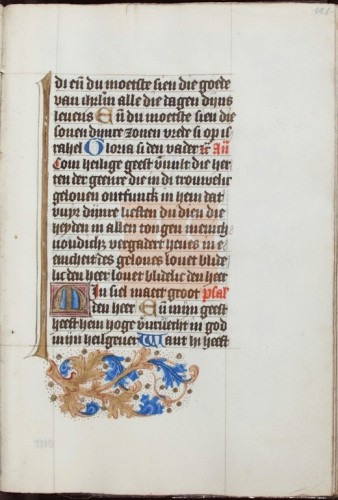 di eñ du moetste sien die goede
van ihrlm̃ alle die dagen dijns
leuens Eñ du moetste sien die
sonen dijnre zonen vrede si op is
rahel Gloria Añ
Com heilige geest v̄uult die her
ten der geenre die in di trouwelic
gelouen ontfunck in hem dat
vuyr dijnre lieften du die die
heyden in allen tongen
vergadert heues in e
des geloues louet blide
lic den heer louet blidelic den heer
Mijn siel maect groot psal
den heer Eñ mijn geest
heeft hem hoge in god
mijn heilgeuer Want hi heeft